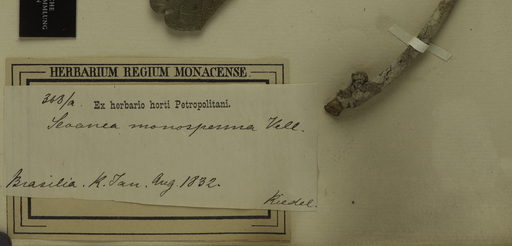 CHE
MMLUNG
HERBARIUM REGIUM MONACENSE
348/a. Ex herbario horti Petropolitani.
Sloanea monosperma Vell.
Brasilia. R. Jan. Aug. 1832.
Riedel.